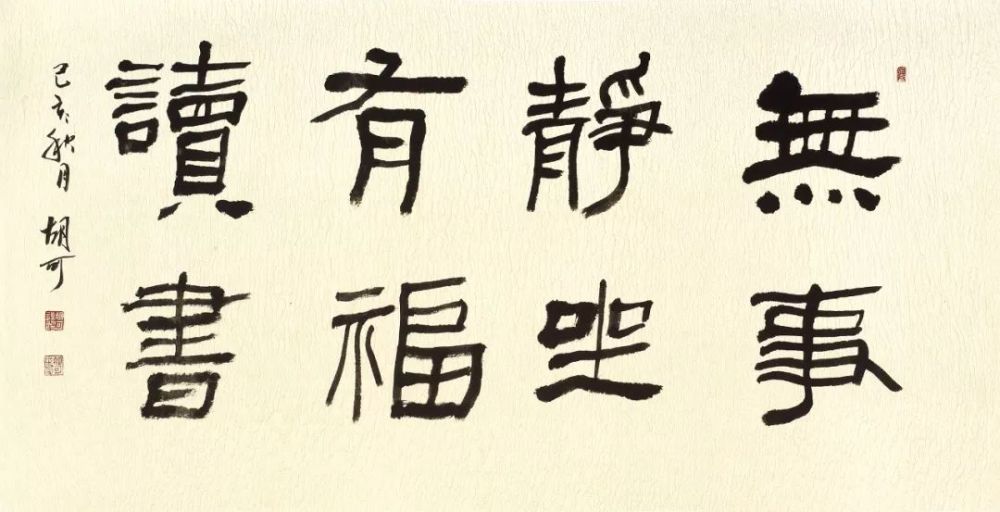 無事
靜坐
有福
讀書
己亥秋月 胡可